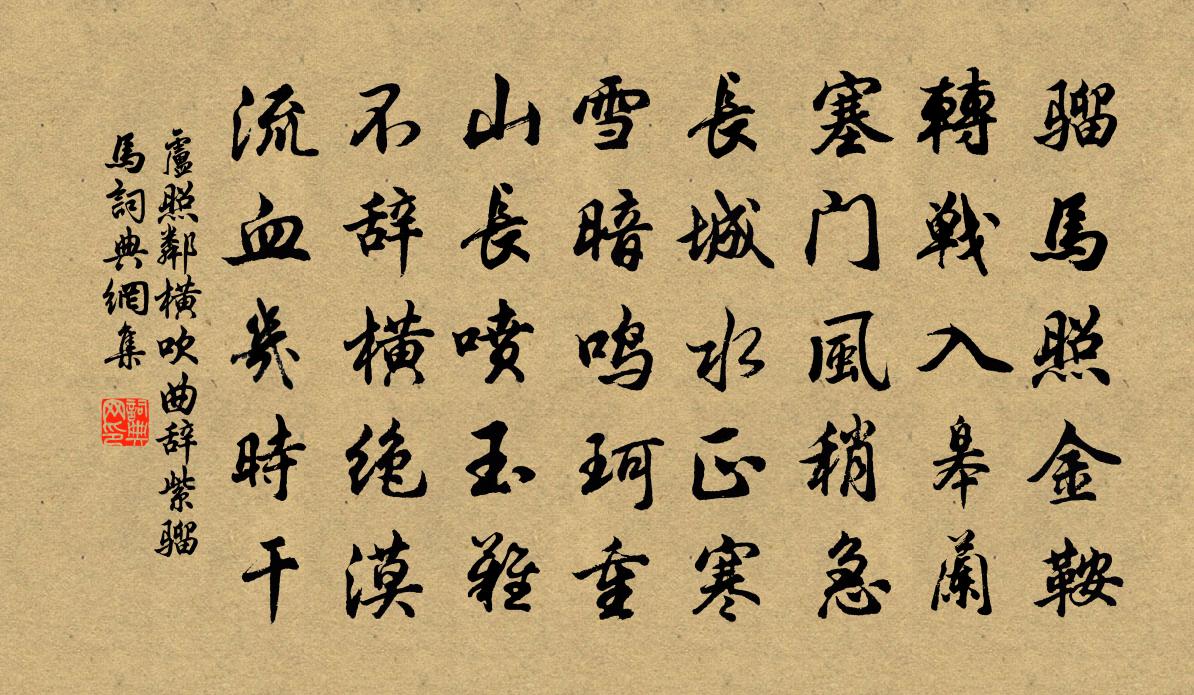 骝馬照金鞍
轉戦入皋蘭
塞门風稍急
長城水正寒
雪暗鸣珂重
山長喷玉難
不辞橫绝漠
流血幾時干
盧照鄰橫吹曲辞紫骝
馬詞典網集
詞典
网印